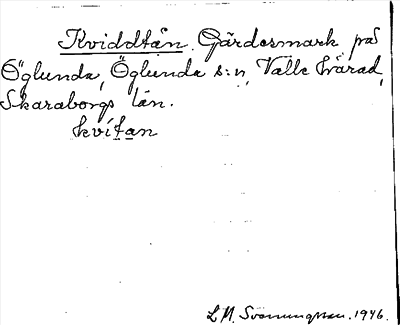 Kviddtån. Gärdesmark på
Öglunda, Öglunda s:n, Valle härad,
Skaraborgs län.
kvítan
L. M. Svanungsson. 1946.